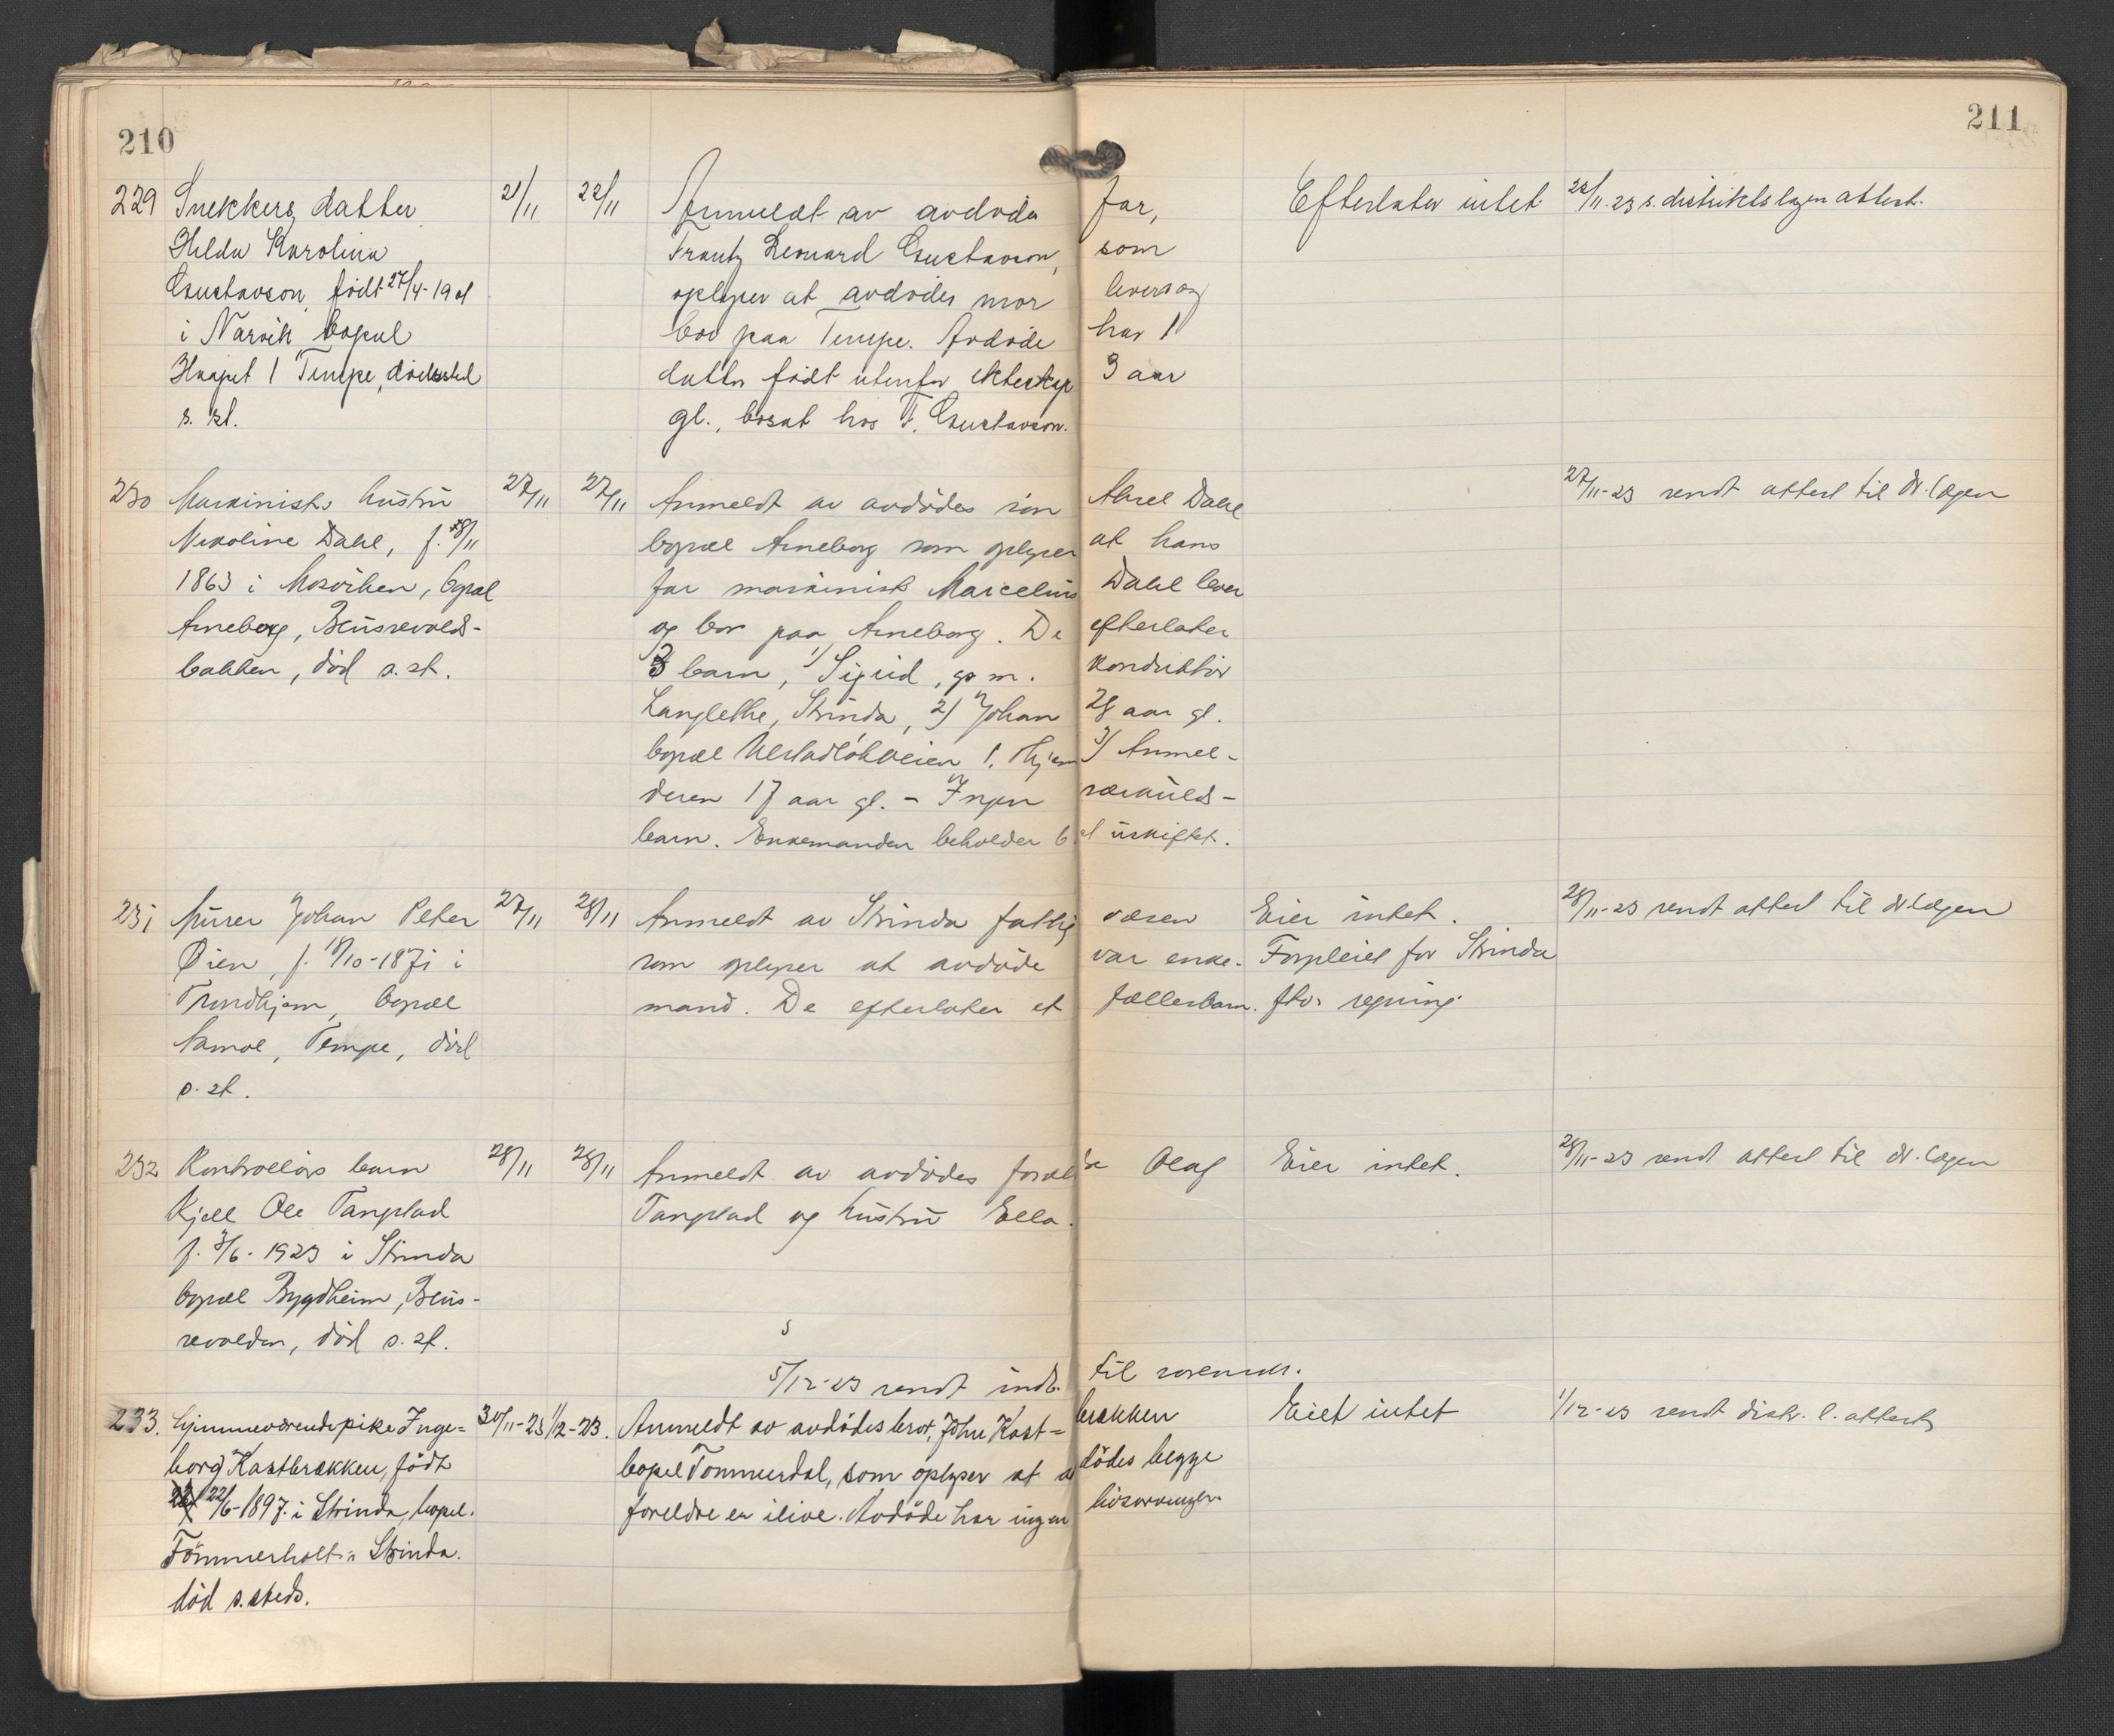 210
211
229 Snekkers datter 21/11 22/11 Anmeldt av avdøde far, Efterlater intet 22/11-23 s. distriktslægen attest.
Hilda Karolina Frantz Leonard Gustavson, som
Gustavson, født 27/4-1901 oplyser at avdødes mor lever og
i Narvik bopæl bor paa Tempe. Avdøde har 1
Haapet 1 Tempe, dødssted datter født utenfor ekteskap 3 aar
s. st. gl., bosat hos F. Gustavson.
230 Maskinists hustru 27/11 27/11 Anmeldt av avdødes søn Aksel Dahl 27/11-23 sendt attest til d.lægen
Nikoline Dahl, f. 28/11 bopæl Arneborg som oplyser at hans
1863 i Mosviken, bopæl far maskinist Marcelius Dahl lever
Arneborg, Beusrevolds- og bor paa Arneborg. De efterlater
bakken, død s. st. 3 barn, 1) Sigrid, g. m. konduktør
Langlethe, Strinda, 2) Johan 28 aar gl.
bopæl 1. Hjem 3) Anmel-
deren 17 aar gl. - Ingen særkulds-
barn. Enkemanden beholder bet uskiftet.
231 Murer Johan Peter 27/11 28/11 Anmeldt av Strinda fattigvæsen Eier intet. 28/11-23 sendt attest til d.lægen
Øien, f. 18/10-1871 i som oplyser at avdøde var enke- Forpleiet for Strinda
Trondhjem, bopæl mand. De efterlater et fællesbarn. ftv. regning
Tempe, død
s. st.
232 Kontrollørs barn 28/11 28/11 Anmeldt av avdødes forældre Olaf Eier intet. 28/11-23 sendt attest til d.lægen
Kjell Ole Tangstad Tangstad og hustru Ella.
f. 3/6-1923 i Strinda
bopæl Bygdheim, Beus-
revolden, død s. st.
5/12-23 sendt indb. til sorensk.
233. Hjemmeværende pike Inge= 30/11-23 1/12-23. Anmeldt av avdødes bror, John Kast= brækken Eiet intet 1/12-23 sendt distr. l. attest
borg Kastbrækken, født bopel Tømmerdal, som oplyser at avdødes begge
22/6-1897 i Strinda, bopel. foreldre er ilive. Avdøde har ingen livsarvinger.
Tømmerholt i Strinda.
død s. steds.